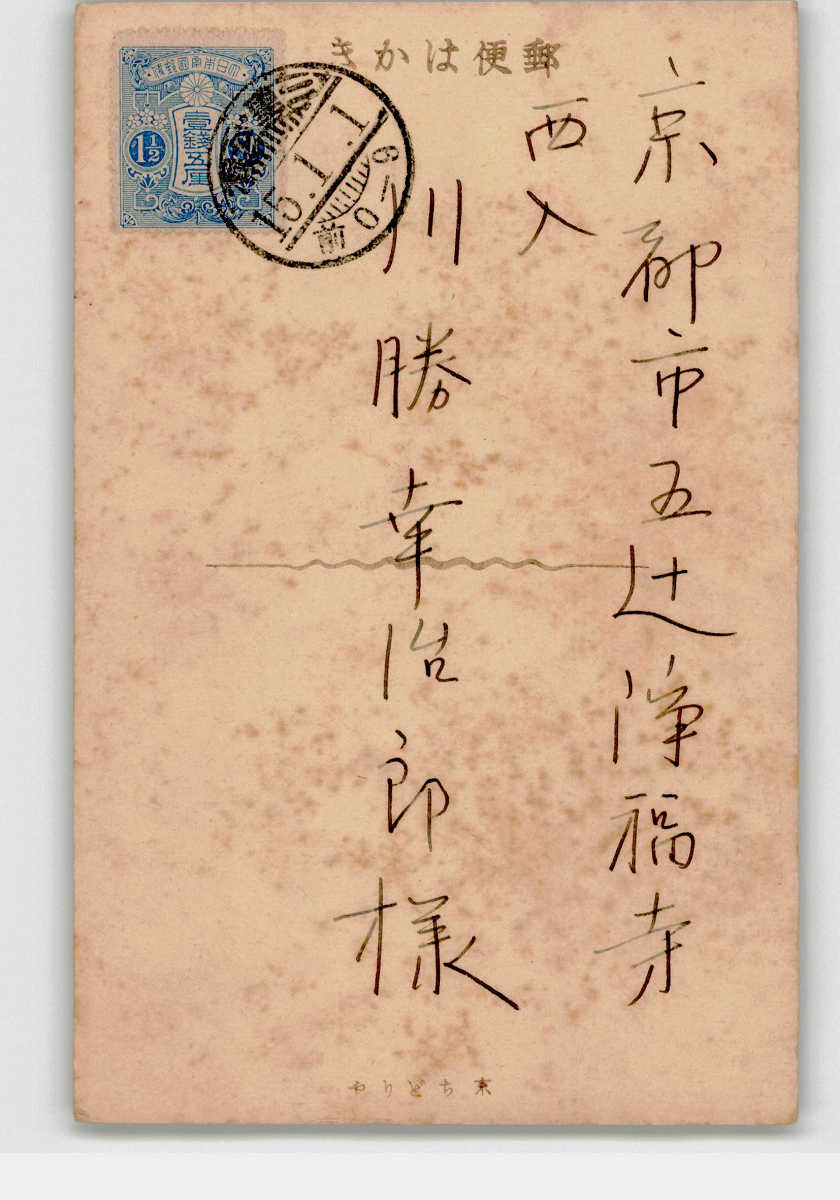 郵便はかき
京都市五辻浄福寺
西入
川勝幸治郎様
大日本帝國郵便
壹錢五厘
1½
15.1.1
前0-9
京ちどりや